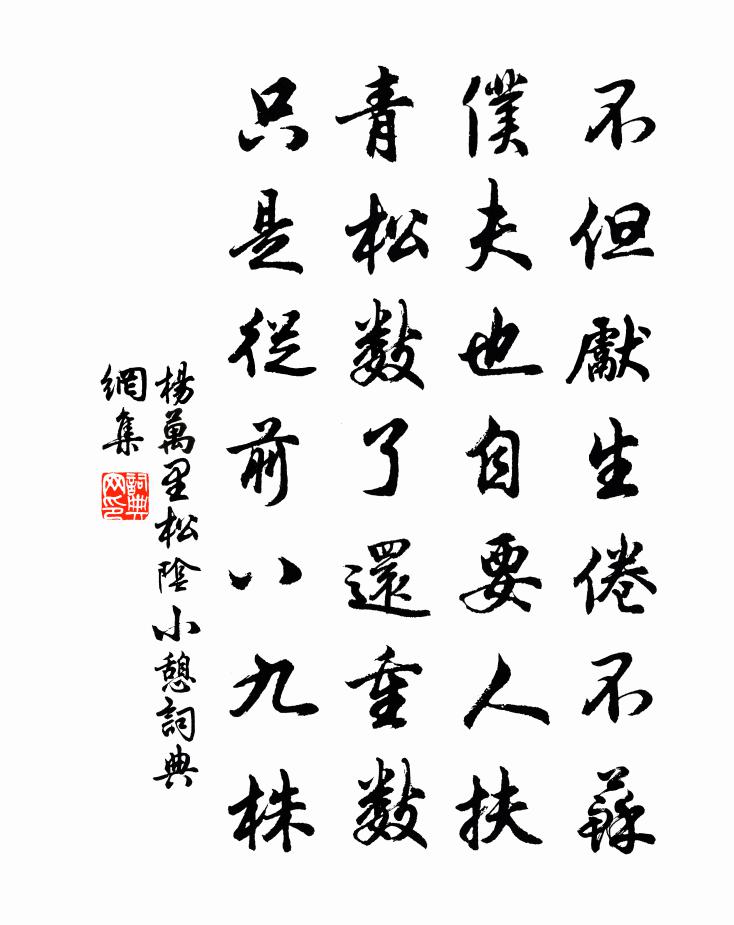 不但獻生倦不蘇
僕夫也自要人扶
青松数了還重数
只是從前八九株
楊萬里松陰小憩詞典
網集
詞典
网印